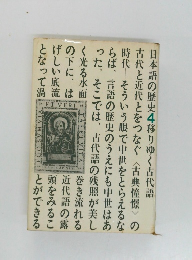 日本語の歴史4移りゆく古代語
古代と近代とをつなぐ〈古典憧憬〉の
時代―そういう眼で中世をとらえるな
らば、言語の歴史のうえにも中世はあ
った。そこでは、古代語の残照が美し
く光る水面
の下に、は
げしい底流
となって渦
巻き流れる
近代語の露
頭をみるこ
とができる